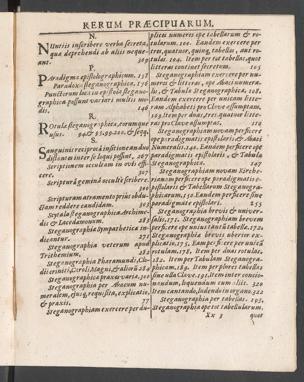 RERUM PRÆCIPUARUM.
N.
Nuntiis inscribere verba secreta,
quæ deprehendi ab aliis neque-
ant. 309
P.
Paradigma epistolographicum. 138
Paradoxa steganographica. 136
Punctorum lusus in epistola stegano-
graphica possunt variari multis mo-
dis. 146
R.
Rotulæ steganographicæ, earumque
usus. 94. & 95.99.200. & seqq.
S.
Sanguinis reciprocâ insitione an duo
distantes inter se loqui possint. 267
Scriptionem occultam in ovis effi-
cere.
Scripturâ gemina occultè scribere.
Scripturam atramento priùs obdu-
ctam reddere candidam. 303
Scytala steganographica Archime-
dis & Lacedæmonum.
Steganographia Sympathetica in-
dicantur. 271
Steganographia veterum apud
Trithemium. 282
Steganographia Pharamundi, Clo-
dii crinati, Caroli Magni, & aliorũ 284
Steganographica praxis varia. 300
Steganographia per Abacum nu-
meralem, quæ, requisita, explicatio,
& praxis. 77
Steganographiam exercere per du-
plices numeros ope tabellarum & ro-
tularum. 100. Eandem exercere per
tres, quatuor, quinq, tabellas, aut ro-
tulas. 104. Item per tot tabellas, quot
litteras continet secretum. 105
Steganographiam exercere per nu-
meros & litteras, ope Abaci numera-
lis, & Tabulæ Steganographicæ. 108.
Eandem exercere per unicam lite-
ram Alphabeti pro Clave assumptam.
109. item per duas, tres, quatuor lite-
ras pro Clave assumptas. 110
Steganographiam novam perficere
ope paradigmatis epistolaris, & Abaci
Numeralis. 140. Eandem perficere ope
paradigmatis epistolaris, & Tabulæ
Steganographicæ. 147
Steganographiam novam Kirche-
rianam perficere ope paradigmatis e-
pistolaris & Tabellarum Steganogra-
phicarum. 150. Eandem perficere sine
paradigmate epistolari. 155
Steganographia brevis & univer-
salis. 171. Steganographiam brevem
perficere ope unius tantũ tabellæ. 172.
Steganographia brevis uberior ex-
plicatio. 175. Eam perficere per unicã
rotulam. 178. Item per duas rotulas.
182. Item per Tabulam Steganogra-
phicam. 184. Item per plures tabellas
sine ulla Clave. 191. Item inter concio-
nandum, loquendum cum aliis. 320
Item cantando, ludendo in organo. 322
Steganographia per tabellas. 195.
Steganographia ope tot tabellarum,
Xx 3 quot